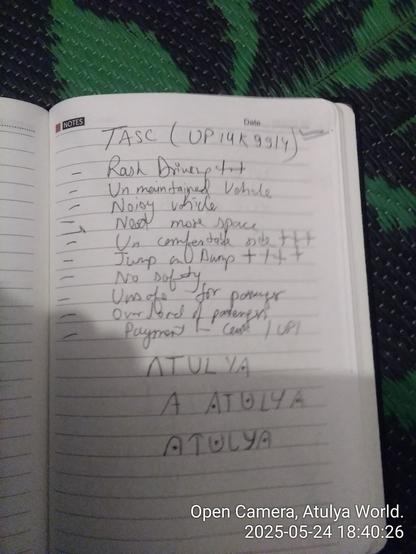 NOTES
Date
TASC ( UP14K9914)
- Rash Drivery +++
- Un maintained Vehicle
- Noisy vehicle
- Need more space
- Un comfortable side +++
- Jump and Bump ++++
- No safety
- Unsafe for passenger
- Over load of passengers
- Payment - Cash / UPI
ATULYA
A ATULYA
ATULYA
Open Camera, Atulya World.
2025-05-24 18:40:26